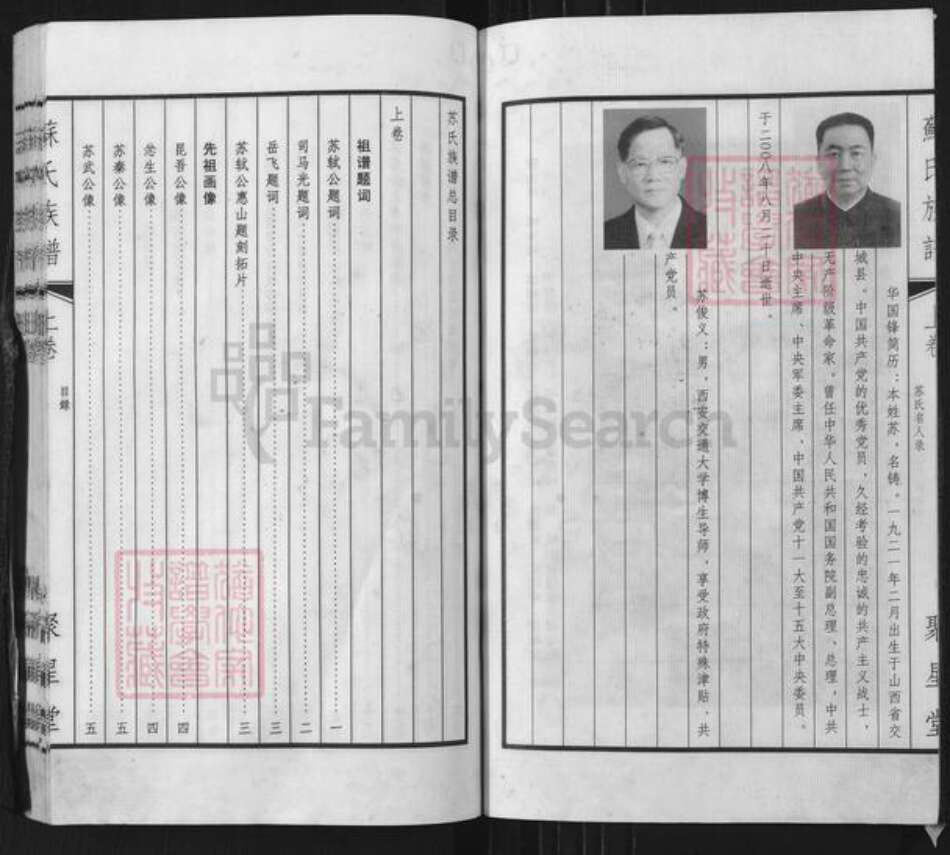 蘇氏族譜
上卷
苏氏名人录
聚星堂
华国锋简历：本姓苏，名铸。一九二一年二月出生于山西省交
城县。中国共产党的优秀党员，久经考验的忠诚的共产主义战士，
无产阶级革命家，曾任中华人民共和国国务院副总理、总理，中共
中央主席、中央军委主席、中国共产党十一大至十五大中央委员。
于二00八年八月二十日逝世。
苏俊义：男，西安交通大学博生导师，享受政府特殊津贴，共
产党员。
苏氏族谱总目录
上卷
祖谱题词
苏轼公题词……一
司马光题词……二
岳飞题词……三
苏轼公惠山题刻拓片……三
先祖画像
昆吾公像……四
忿生公像……四
苏秦公像……五
苏武公像……五
蘇氏族譜
上卷
目錄
聚星堂
FamilySearch